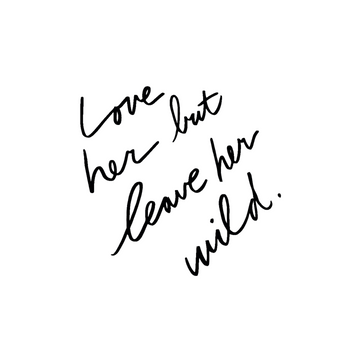 Love
her but
leave her
wild.